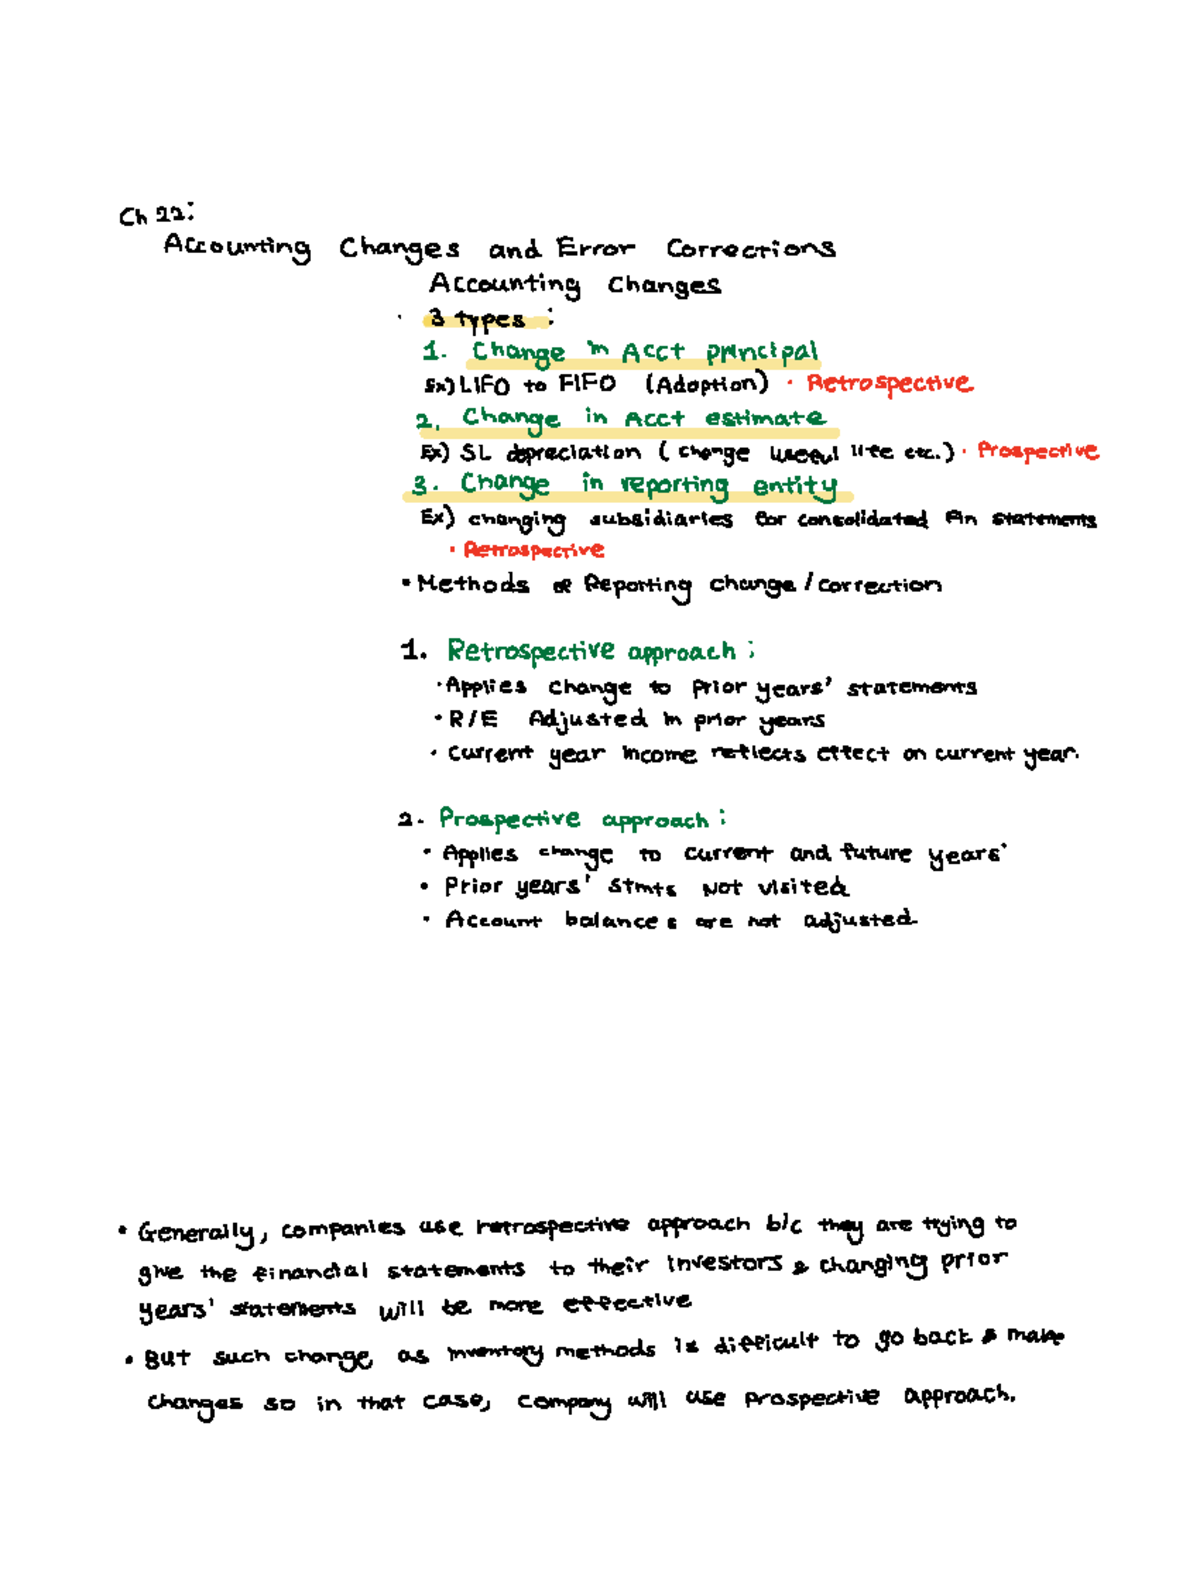 Ch 22:
Accounting Changes and Error Corrections
Accounting Changes
· 3 types :
1. Change in Acct principal
Ex) LIFO to FIFO (Adoption) · Retrospective
2. Change in Acct estimate
Ex) SL depreciation ( change useful life etc.) · Prospective
3. Change in reporting entity
Ex) changing subsidiaries for consolidated fin statements
· Retrospective
• Methods of Reporting change / correction
1. Retrospective approach :
· Applies change to prior years' statements
· R/E Adjusted in prior years
· Current year income reflects effect on current year.
2. Prospective approach :
· Applies change to current and future years'
• Prior years' stmts not visited
· Account balances are not adjusted
• Generally, companies use retrospective approach b/c they are trying to
give the financial statements to their investors & changing prior
years' statements will be more effective
• But such change, as inventory methods is difficult to go back & make
changes so in that case, company will use prospective approach.